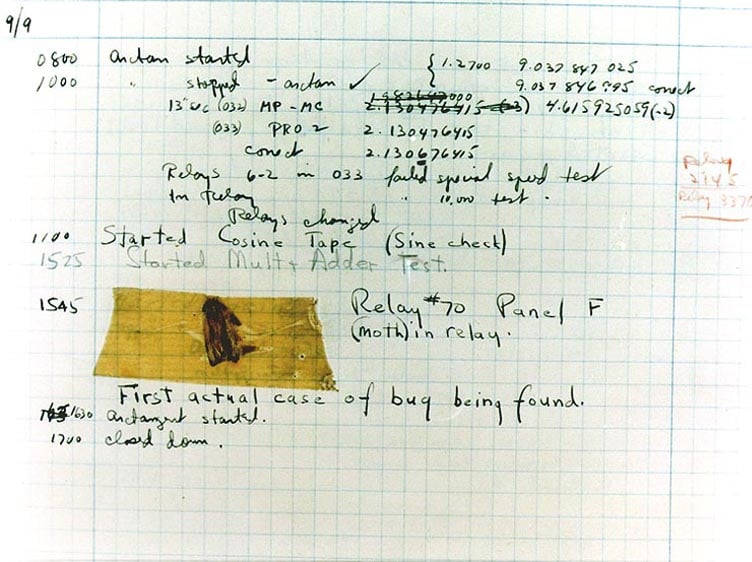 9/9
0800 Antan started { 1.2700 9.037 847 025
1000 " stopped - antan ✓ 9.037 846 995 conect
13"uc (032) MP - MC 2.130476415 (-3) 4.615925059(-2)
(033) PRO 2 2.130476415
conect 2.130676415
Relays 6-2 in 033 failed special speed test
In Relay " 10,000 test .
Relays changed
Relay
2145
Relay 3370
1100 Started Cosine Tape (Sine check)
1525 Started Mult+Adder Test.
1545 Relay #70 Panel F
(moth) in relay.
First actual case of bug being found.
1630 antangent started.
1700 closed down.